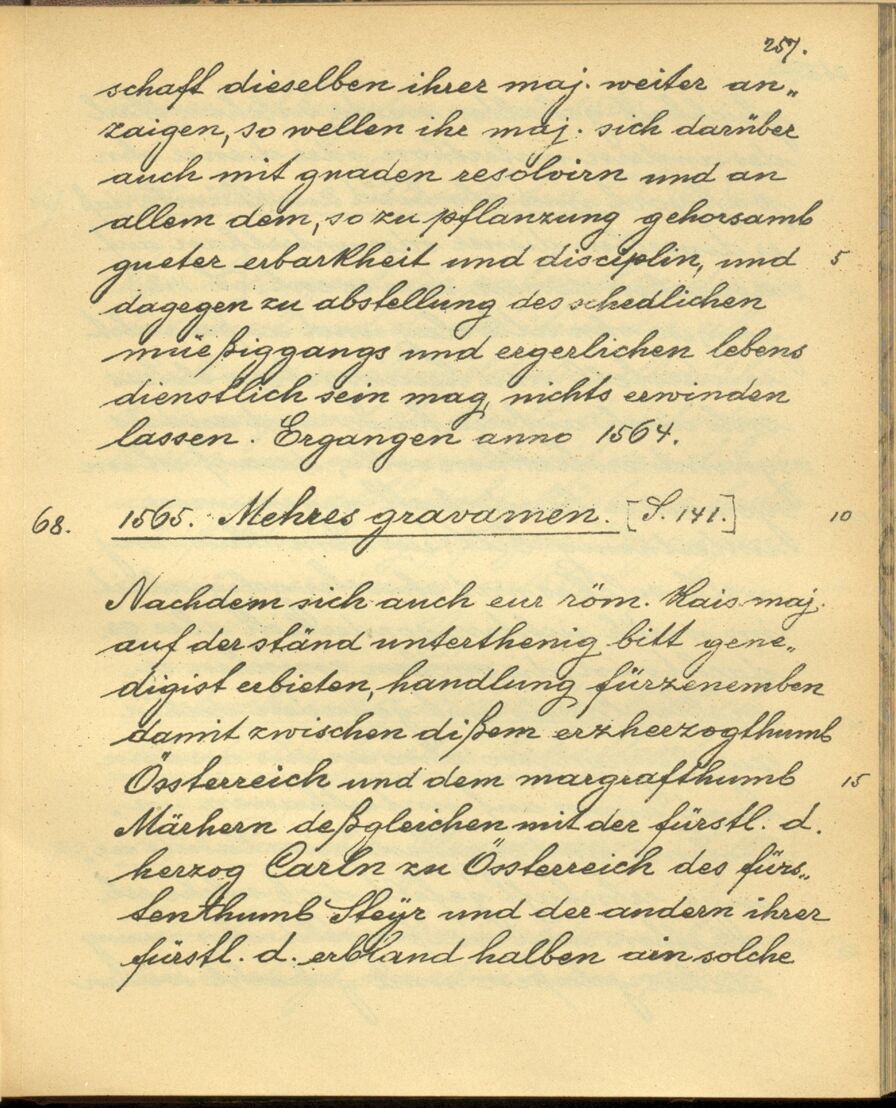 257.
schaft dieselben ihrer maj. weiter an„
zaigen, so wellen ihr maj. sich darüber
auch mit gnaden resolvirn und an
allem dem, so zu pflanzung gehorsamb
gueter erbarkheit und disciplin, und 5
dagegen zu abstellung des schedlichen
müeßiggangs und ergerlichen lebens
dienstlich sein mag, nichts erwinden
lassen. Ergangen anno 1564.
68. 1565. Mehres gravamen. [S. 141.] 10
Nachdem sich auch eur röm. Kais maj.
auf der ständ unterthenig bitt gene„
digist erbieten, handlung fürzenemben
damit zwischen dißem erzherzogthumb
Össterreich und dem margrafthumb 15
Märhern deßgleichen mit der fürstl. d.
herzog Carln zu Össterreich des fürs„
tenthumb Steÿr und der andern ihrer
fürstl. d. erbland halben ain solche